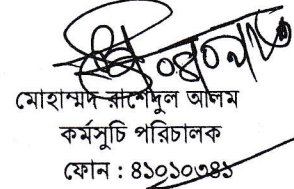 মোহাম্মদ রাশেদুল আলম
কর্মসুচি পরিচালক
ফোন : ৪১০১০৩৪১